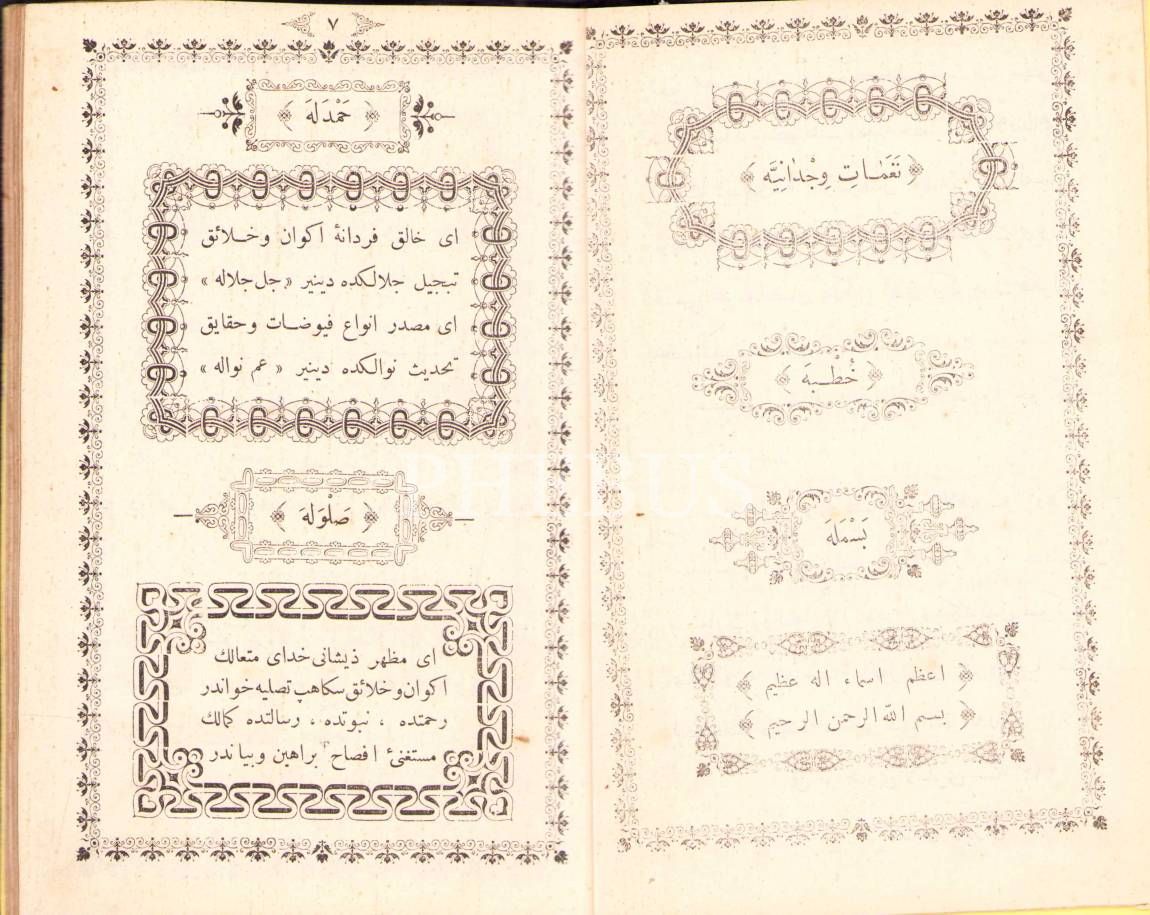 ﴿ نَغَمَاتِ وِجْدَانِيَّه ﴾
﴿ خُطْبَه ﴾
بَسْمَلَه
﴿ اعظم اسماء اله عظيم ﴾
﴿ بسم الله الرحمن الرحيم ﴾
٧
﴿ حَمْدَلَه ﴾
اى خالق فردانهٔ اكوان وخلائق
تبجيل جلالكده دينير « جل جلاله »
اى مصدر انواع فيوضات وحقايق
تحديث نوالكده دينير « عم نواله »
﴿ صَلْوَلَه ﴾
اى مظهر ذيشانى خداى متعالك
اكوان وخلائق سكا هپ تصليه خواندر
رحمتده ، نبوتده ، رسالتده كمالك
مستغنىٔ افصاح براهين وبياندر
PHEBUS